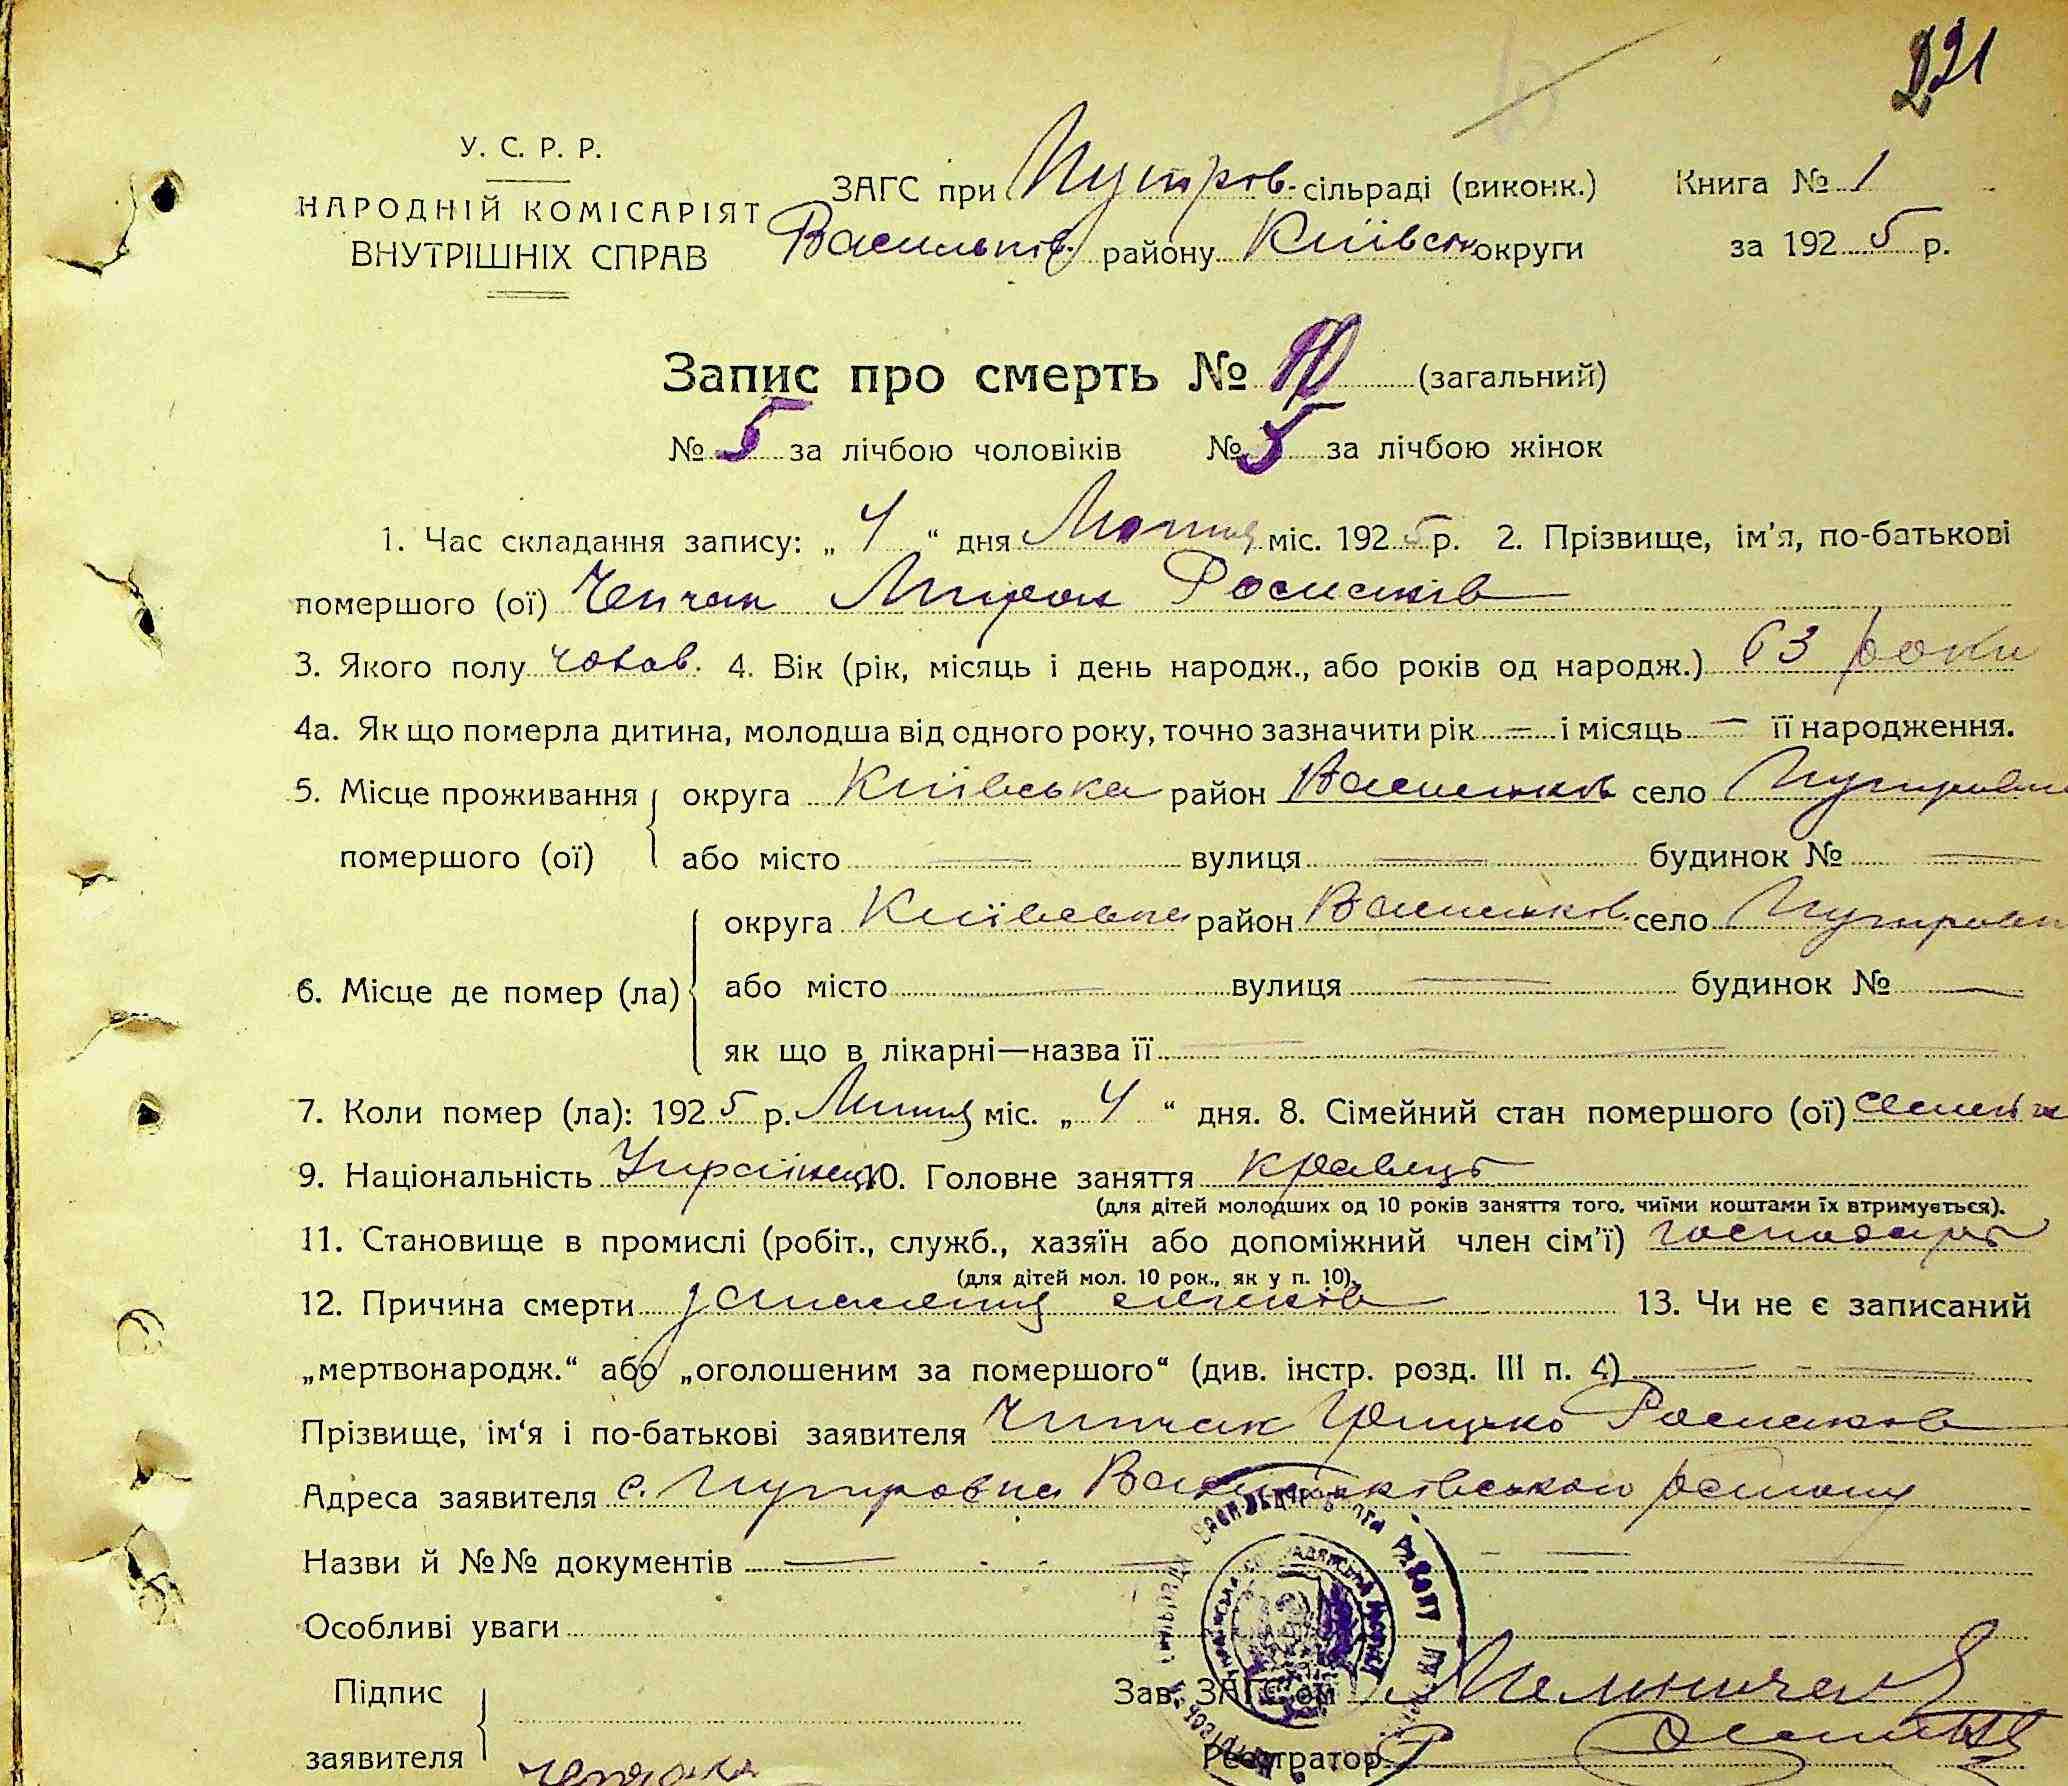 221
У. С. Р. Р.
НАРОДНІЙ КОМІСАРІЯТ
ВНУТРІШНІХ СПРАВ
ЗАГС при Путров. сільраді (виконк.) Книга № 1
Васильків. району Київськ округи за 1925 р.
Запис про смерть № 10 (загальний)
№ 5 за лічбою чоловіків № 5 за лічбою жінок
1. Час складання запису: „4“ дня Лютня міс. 1925 р. 2. Прізвище, ім'я, по-батькові
помершого (ої) Чепчак Мирон
3. Якого полу чолов. 4. Вік (рік, місяць і день народж., або років од народж.) 63 роки
4а. Як що померла дитина, молодша від одного року, точно зазначити рік — і місяць — її народження.
5. Місце проживання округа Київська район Васильков село Путровка
помершого (ої) або місто — вулиця — будинок № —
округа Київська район Васильков. село Путровк
6. Місце де помер (ла) або місто — вулиця — будинок № —
як що в лікарні—назва її — — — —
7. Коли помер (ла): 1925 р. міс. „4“ дня. 8. Сімейний стан помершого (ої)
9. Національність Українець 10. Головне заняття кравець
(для дітей молодших од 10 років заняття того, чиїми коштами їх втримується).
11. Становище в промислі (робіт., служб., хазяїн або допоміжний член сім'ї) господарь
(для дітей мол. 10 рок., як у п. 10).
12. Причина смерти запалення легкків 13. Чи не є записаний
„мертвонародж.“ або „оголошеним за помершого“ (див. інстр. розд. III п. 4) — - —
Прізвище, ім'я і по-батькові заявителя Чипчак Грицько
Адреса заявителя с. Путровка Васильковського району
Назви й №№ документів —
Особливі уваги
Підпис Зав. ЗАГС'ом
заявителя Реєстратор